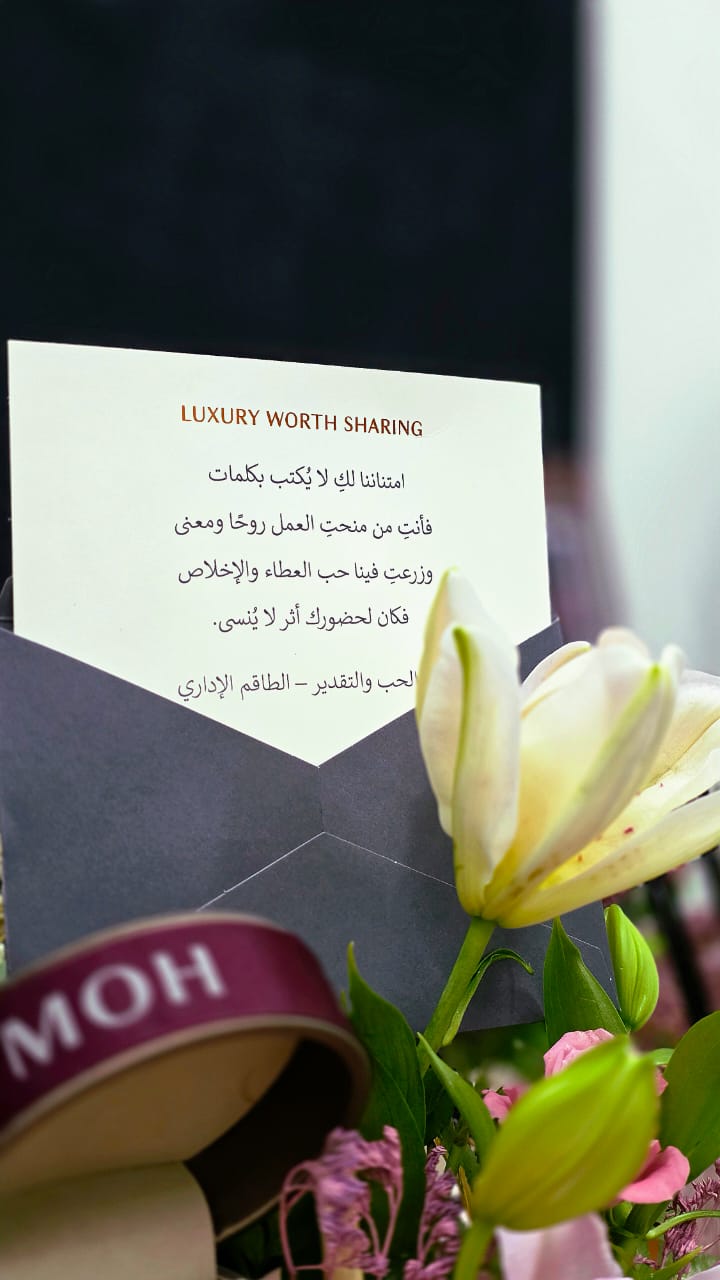 LUXURY WORTH SHARING
امتناننا لكِ لا يُكتب بكلمات
فأنتِ من منحتِ العمل روحًا ومعنى
وزرعتِ فينا حب العطاء والإخلاص
فكان لحضورك أثر لا يُنسى.
الحب والتقدير – الطاقم الإداري
MOH